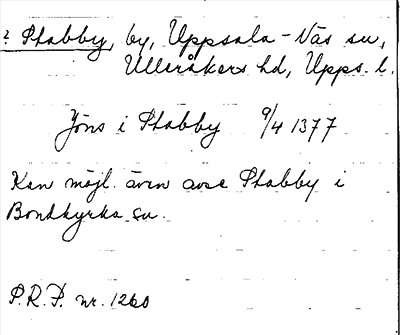 ? Stabby, by, Uppsala-Näs sn,
Ulleråkers hd, Upps. l.
Jöns i Stabby 9/4 1377
Kan möjl. även avse Stabby i
Bondkyrka sn.
P.R.P. nr. 1260